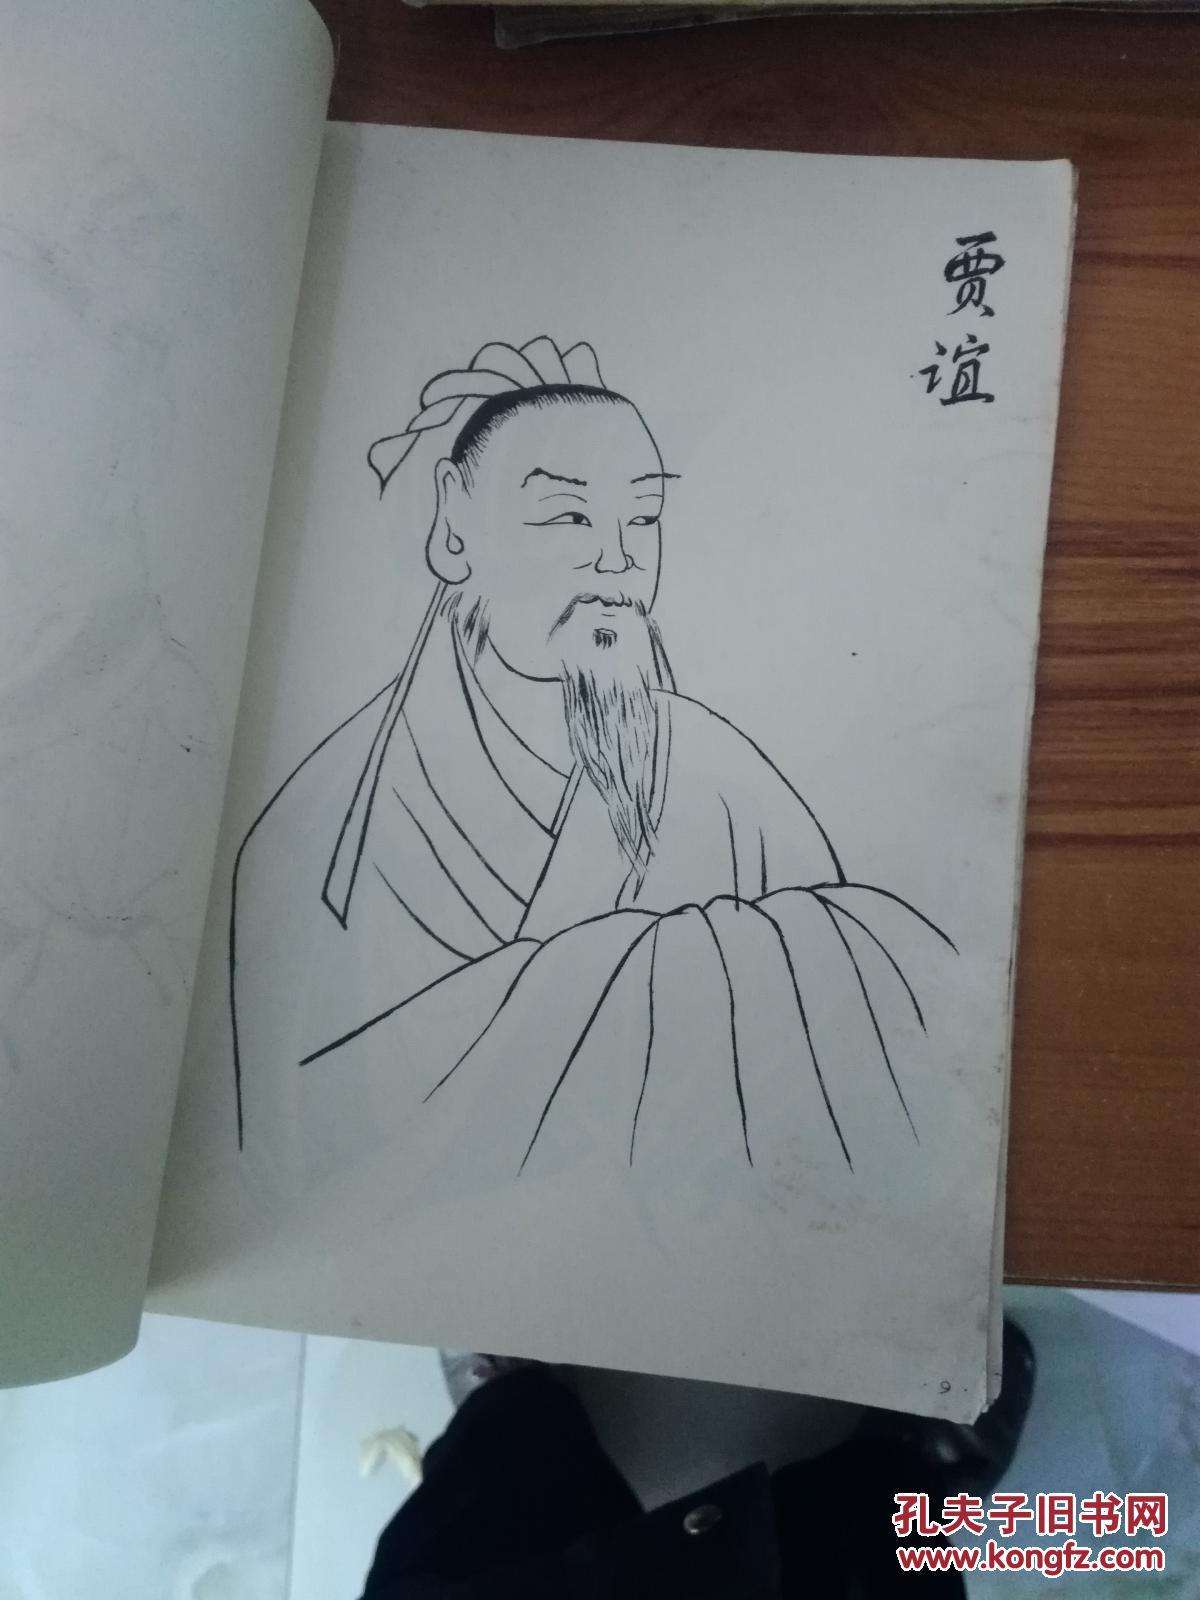 贾谊
·9·
孔夫子旧书网
www.kongfz.com